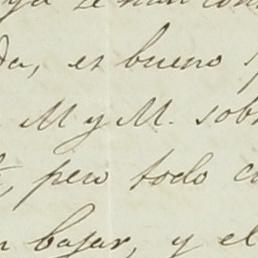 ya se han con
da, es bueno
M y M. sob
pero todo c
bajar, y el